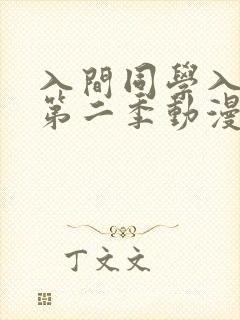 入間同學入
第二季動漫
丁文文